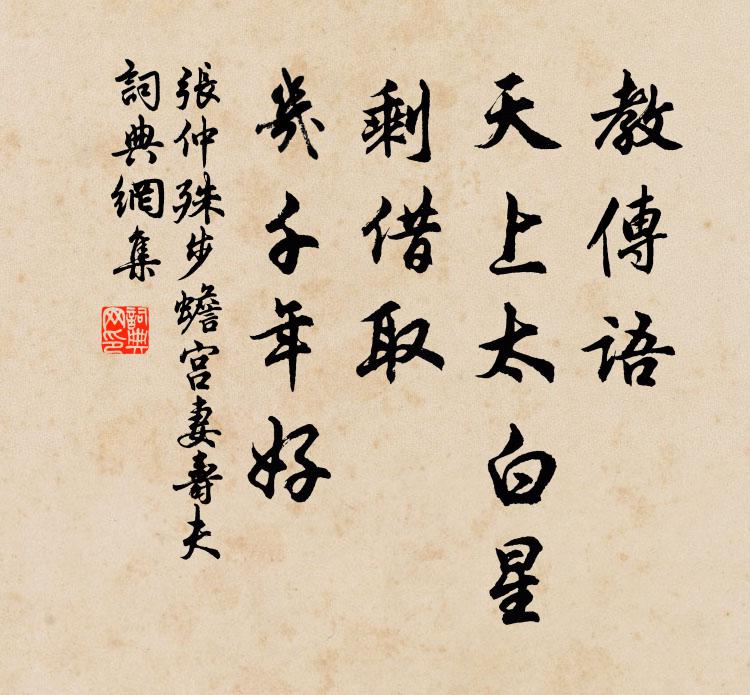 教傳語
天上太白星
剩借取
幾千年好
張仲殊步蟾宮妻壽夫
詞典網集
詞典网印